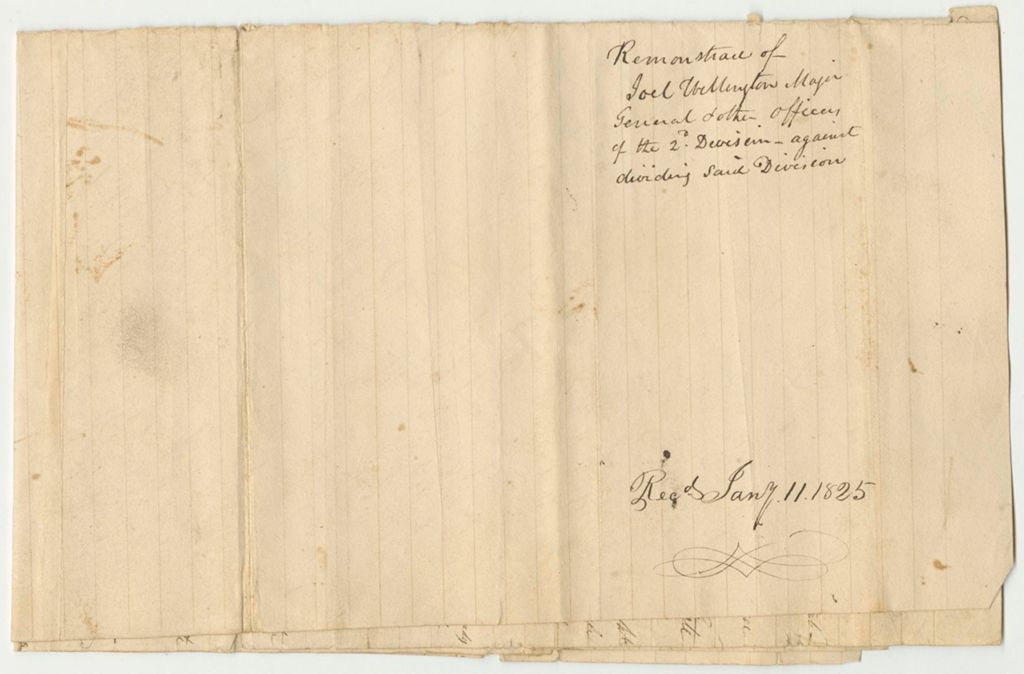 Remonstrace of
Joel Wellington Major
General & other officers
of the 2d. Devisein - against
dividing said Division
Recd. Jany. 11. 1825